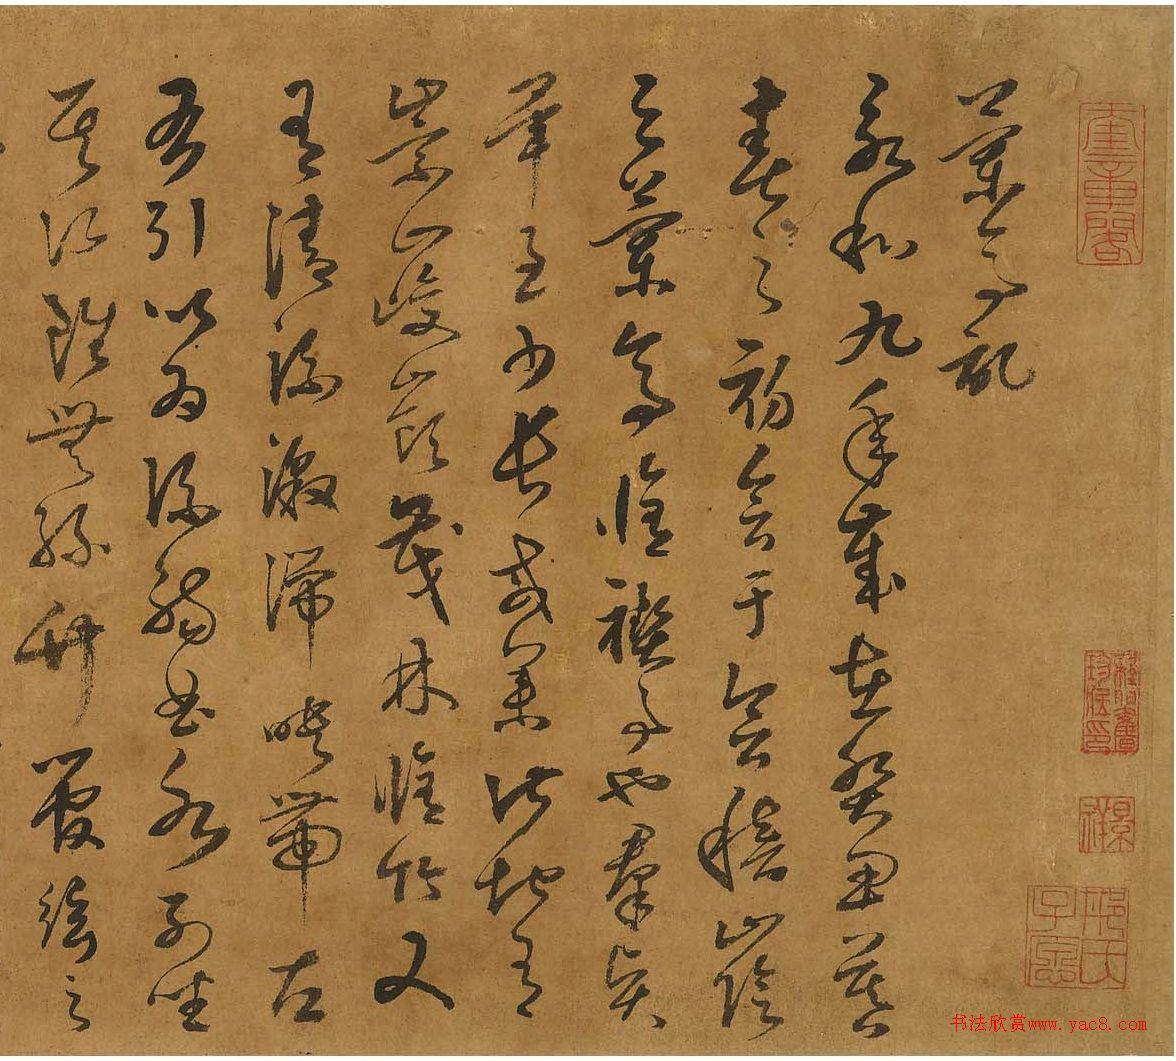 奎章閣
蘭亭敘
永和九年歲在癸丑暮
春之初會于會稽山陰
之蘭亭脩禊事也羣賢
畢至少長咸集此地有
崇山峻嶺茂林脩竹又
有清流激湍映帶左
右引以為流觴曲水列坐
其次雖無絲竹管絃之
书法欣赏www.yac8.com